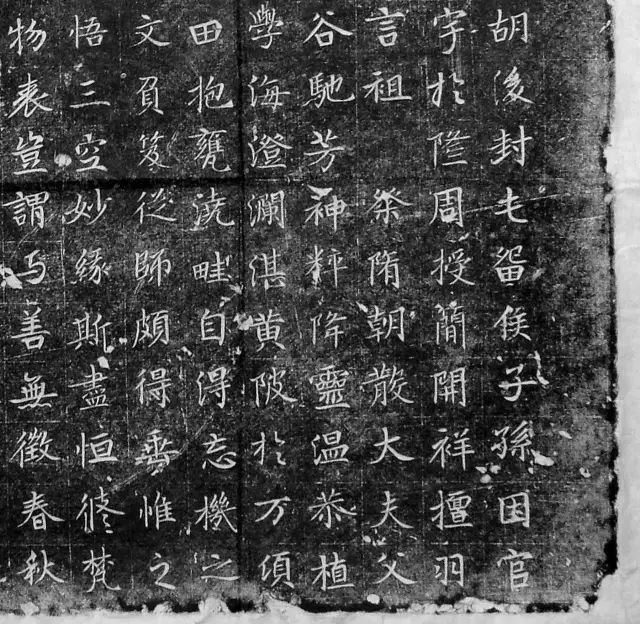 胡後封屯留侯子孫因官
字於隆周授簡開祥擅羽
言祖 祭隋朝散大夫父
谷馳芳神粹降靈温恭植
學海澄瀾湛黄陂於万頃
田抱甕澆畦自得忘機之
文負笈從師頗得垂惟之
悟三空妙緣斯盡恒脩梵
物表豈謂与善無徵春秋